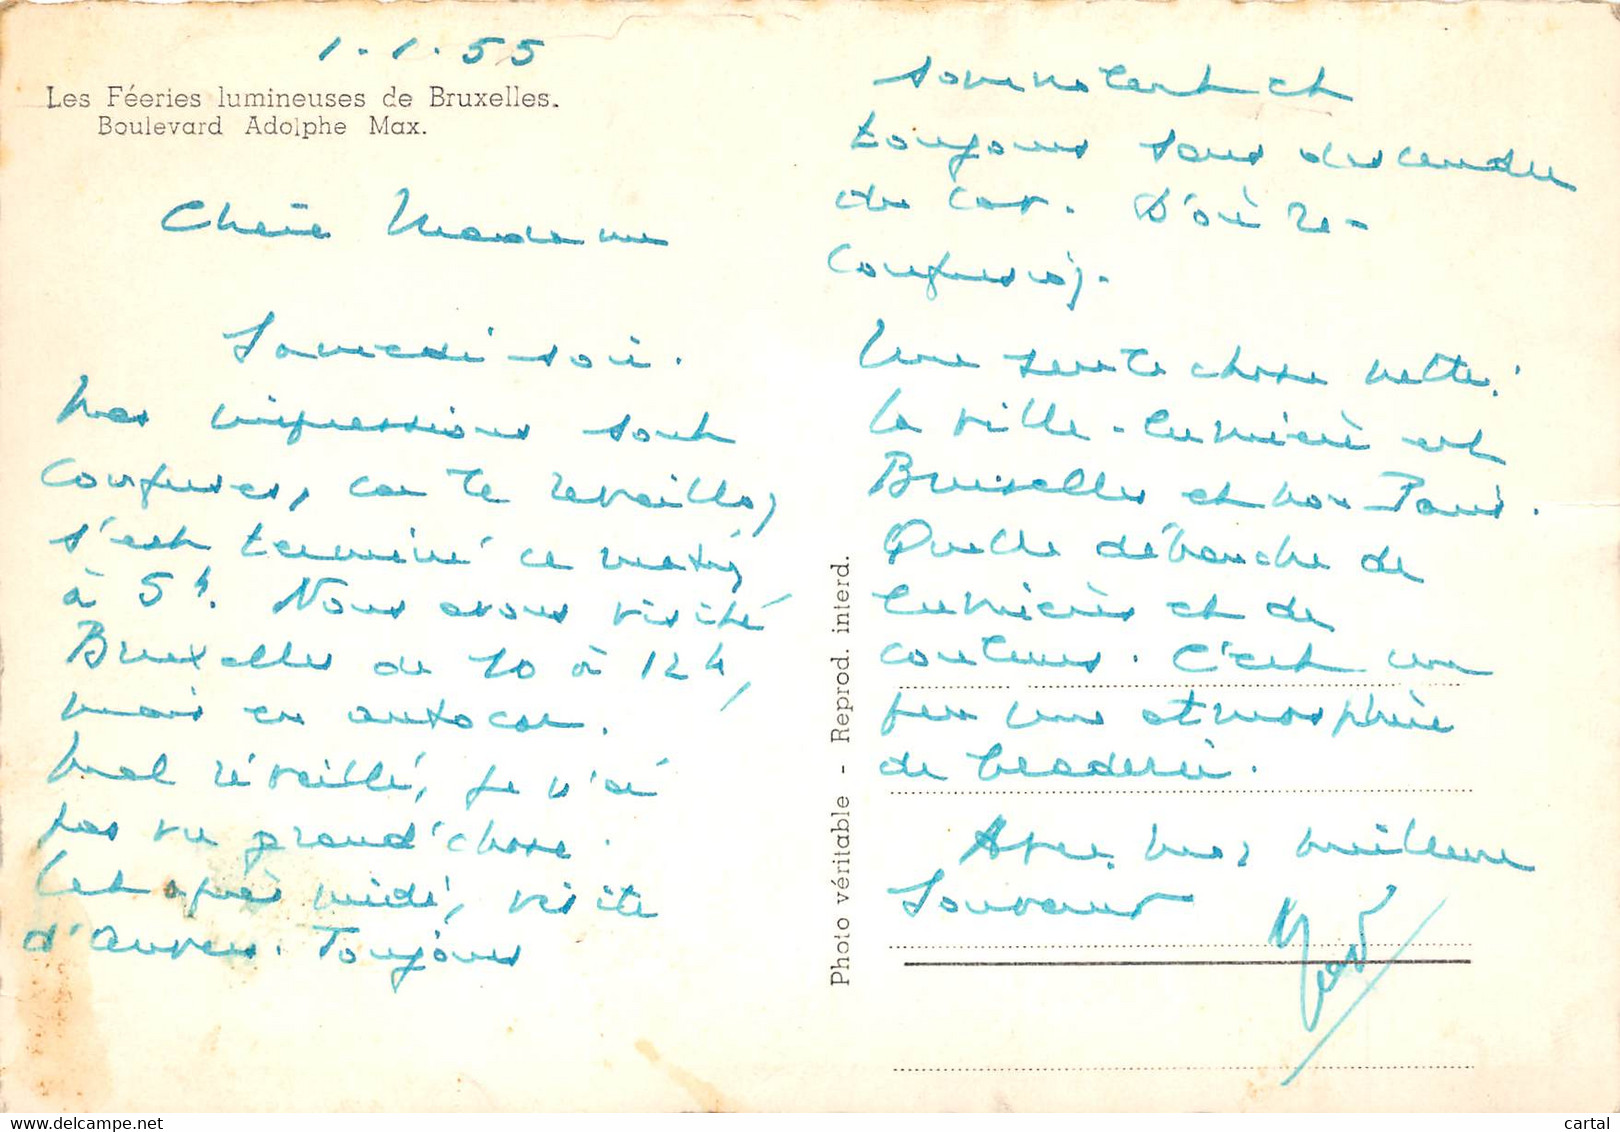 1.1.55
Les Féeries lumineuses de Bruxelles.
Boulevard Adolphe Max.
Chère Madame
Samedi soir.
Mes impressions sont
confuses, car le réveillon
s'est terminé ce matin
à 5h. Nous avons visité
Bruxelles de 10 à 12h,
mais en autocar.
Mal réveillé, je n'ai
pas vu grand'chose.
Cet après midi, visite
d'Anvers. Toujours
somnolent et
toujours sans descendre
du car. D'où re-
confusion.
Une seule chose nette:
la ville-lumière est
Bruxelles et non Paris.
Quelle débauche de
lumières et de
couleurs. C'est un
peu une atmosphère
de braderie.
Avec mes meilleurs
souvenirs
Photo véritable - Reprod. interd.
cartal